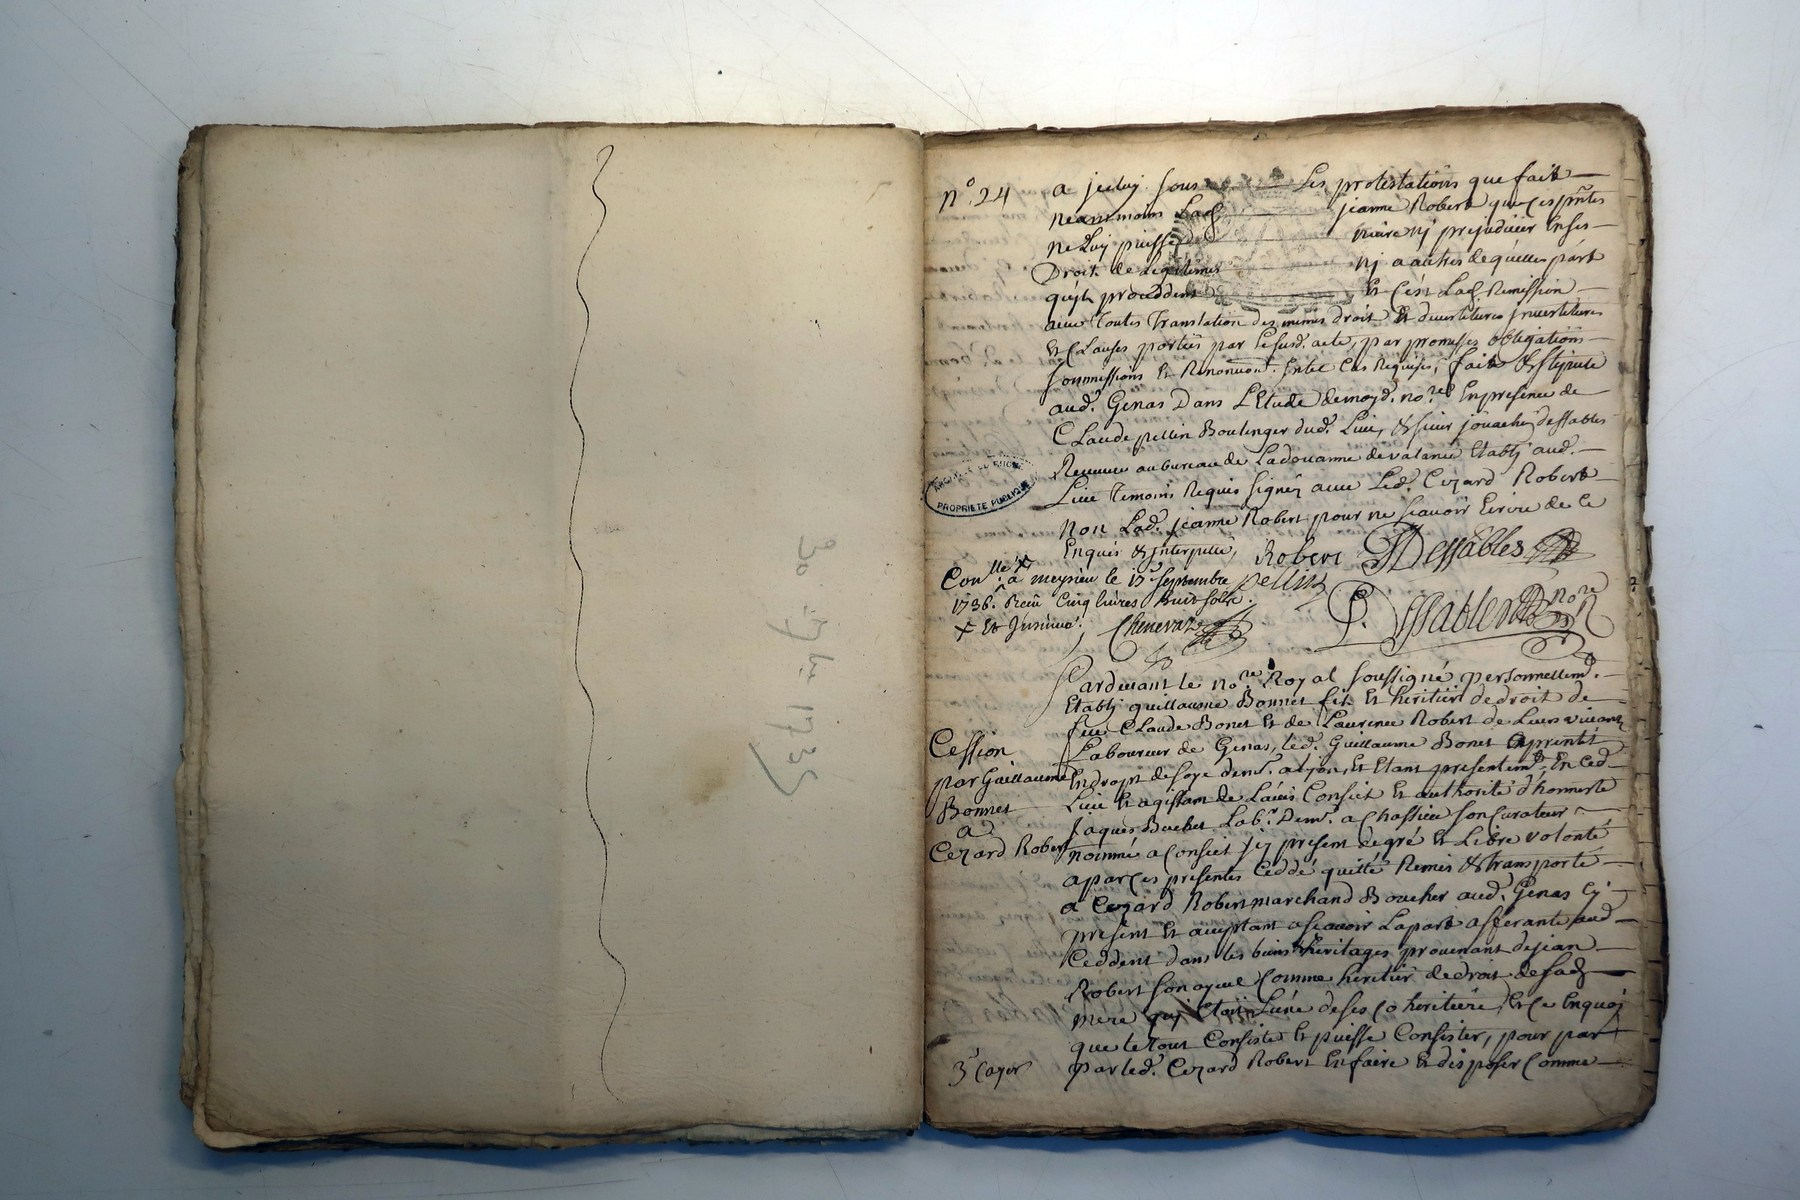 30 7bre 1735
n.º 24
a jceluy sous Les protestations que fait
neantmoins Lad. jeanne Robert que ces pntes
ne Luy puisse nuire nj prejudicier En ses
Droit de Legitimes nj a autres de quelles part
qu'jls proceddent Et c'est Lad. Remission
avec Toutes Translation des mêmes droit Et devestitures jnvestitures
et Clauses portées par le susd. acte, par promesses obligations
soumissions Et Renonciaon. En tel Cas Requises, fait & stipulé
aud. Genas Dans L'Etude de moyd. no.re En presence de
Claude pellin Boulenger dud. Lieu, & sieur jouachin dessables
Receveur au bureau de La douanne de valance Etablj aud.
Lieu Temoins Requis signéz avec Led. Cezard Robert
Non Lad. jeanne Robert pour ne scavoir Ecrire de ce
Enquis & jnterpellée,
Robert
Dessables
pellin
Con.lle X a meysieu le 17 septembre
1736. Receu Cinq livres huit sols.
X Et Jnsinué.
Chenevaz
P. Dessables no.re
Pardevant le no.re Royal soussigné personnellem.t
Etablj guillaume Bonnet fils Et heritier de droit de
feu Claude Bonet Et de Laurence Robert de Leurs vivant
Laboureur de Genas, led. Guillaume Bonet Aprentit
En drapt de soye dem.t a Lyon, Et Etant presentem.t En ced.
Lieu Et agissant de L'avis Conseit Et authorité d'honneste
jaques Buchet Lab.r Dem.t a Chassieu son Curateur
nommé a Conseit jcy present de gré Et Libre volonté
a par ces presentes Ceddé quitté Remis & transporté
a Cezard Robert marchand Boucher aud. Genas Cy
present Et acceptant ascavoir La part afferante aud.
Ceddent dans les biens & heritages provenant de jean
Robert son ayeul Comme heritier de droit de sad.
Mere quj Etoit L'une de ses Co heritiere, Et Ce En quoj
que le Tout Consiste Et puisse Consister, pour par
par led. Cezard Robert En faire Et disposer Comme
Cession
par Guillaume
Bonnet
a
Cezard Robert
3.e Cayer
PROPRIETE PUBLIQUE